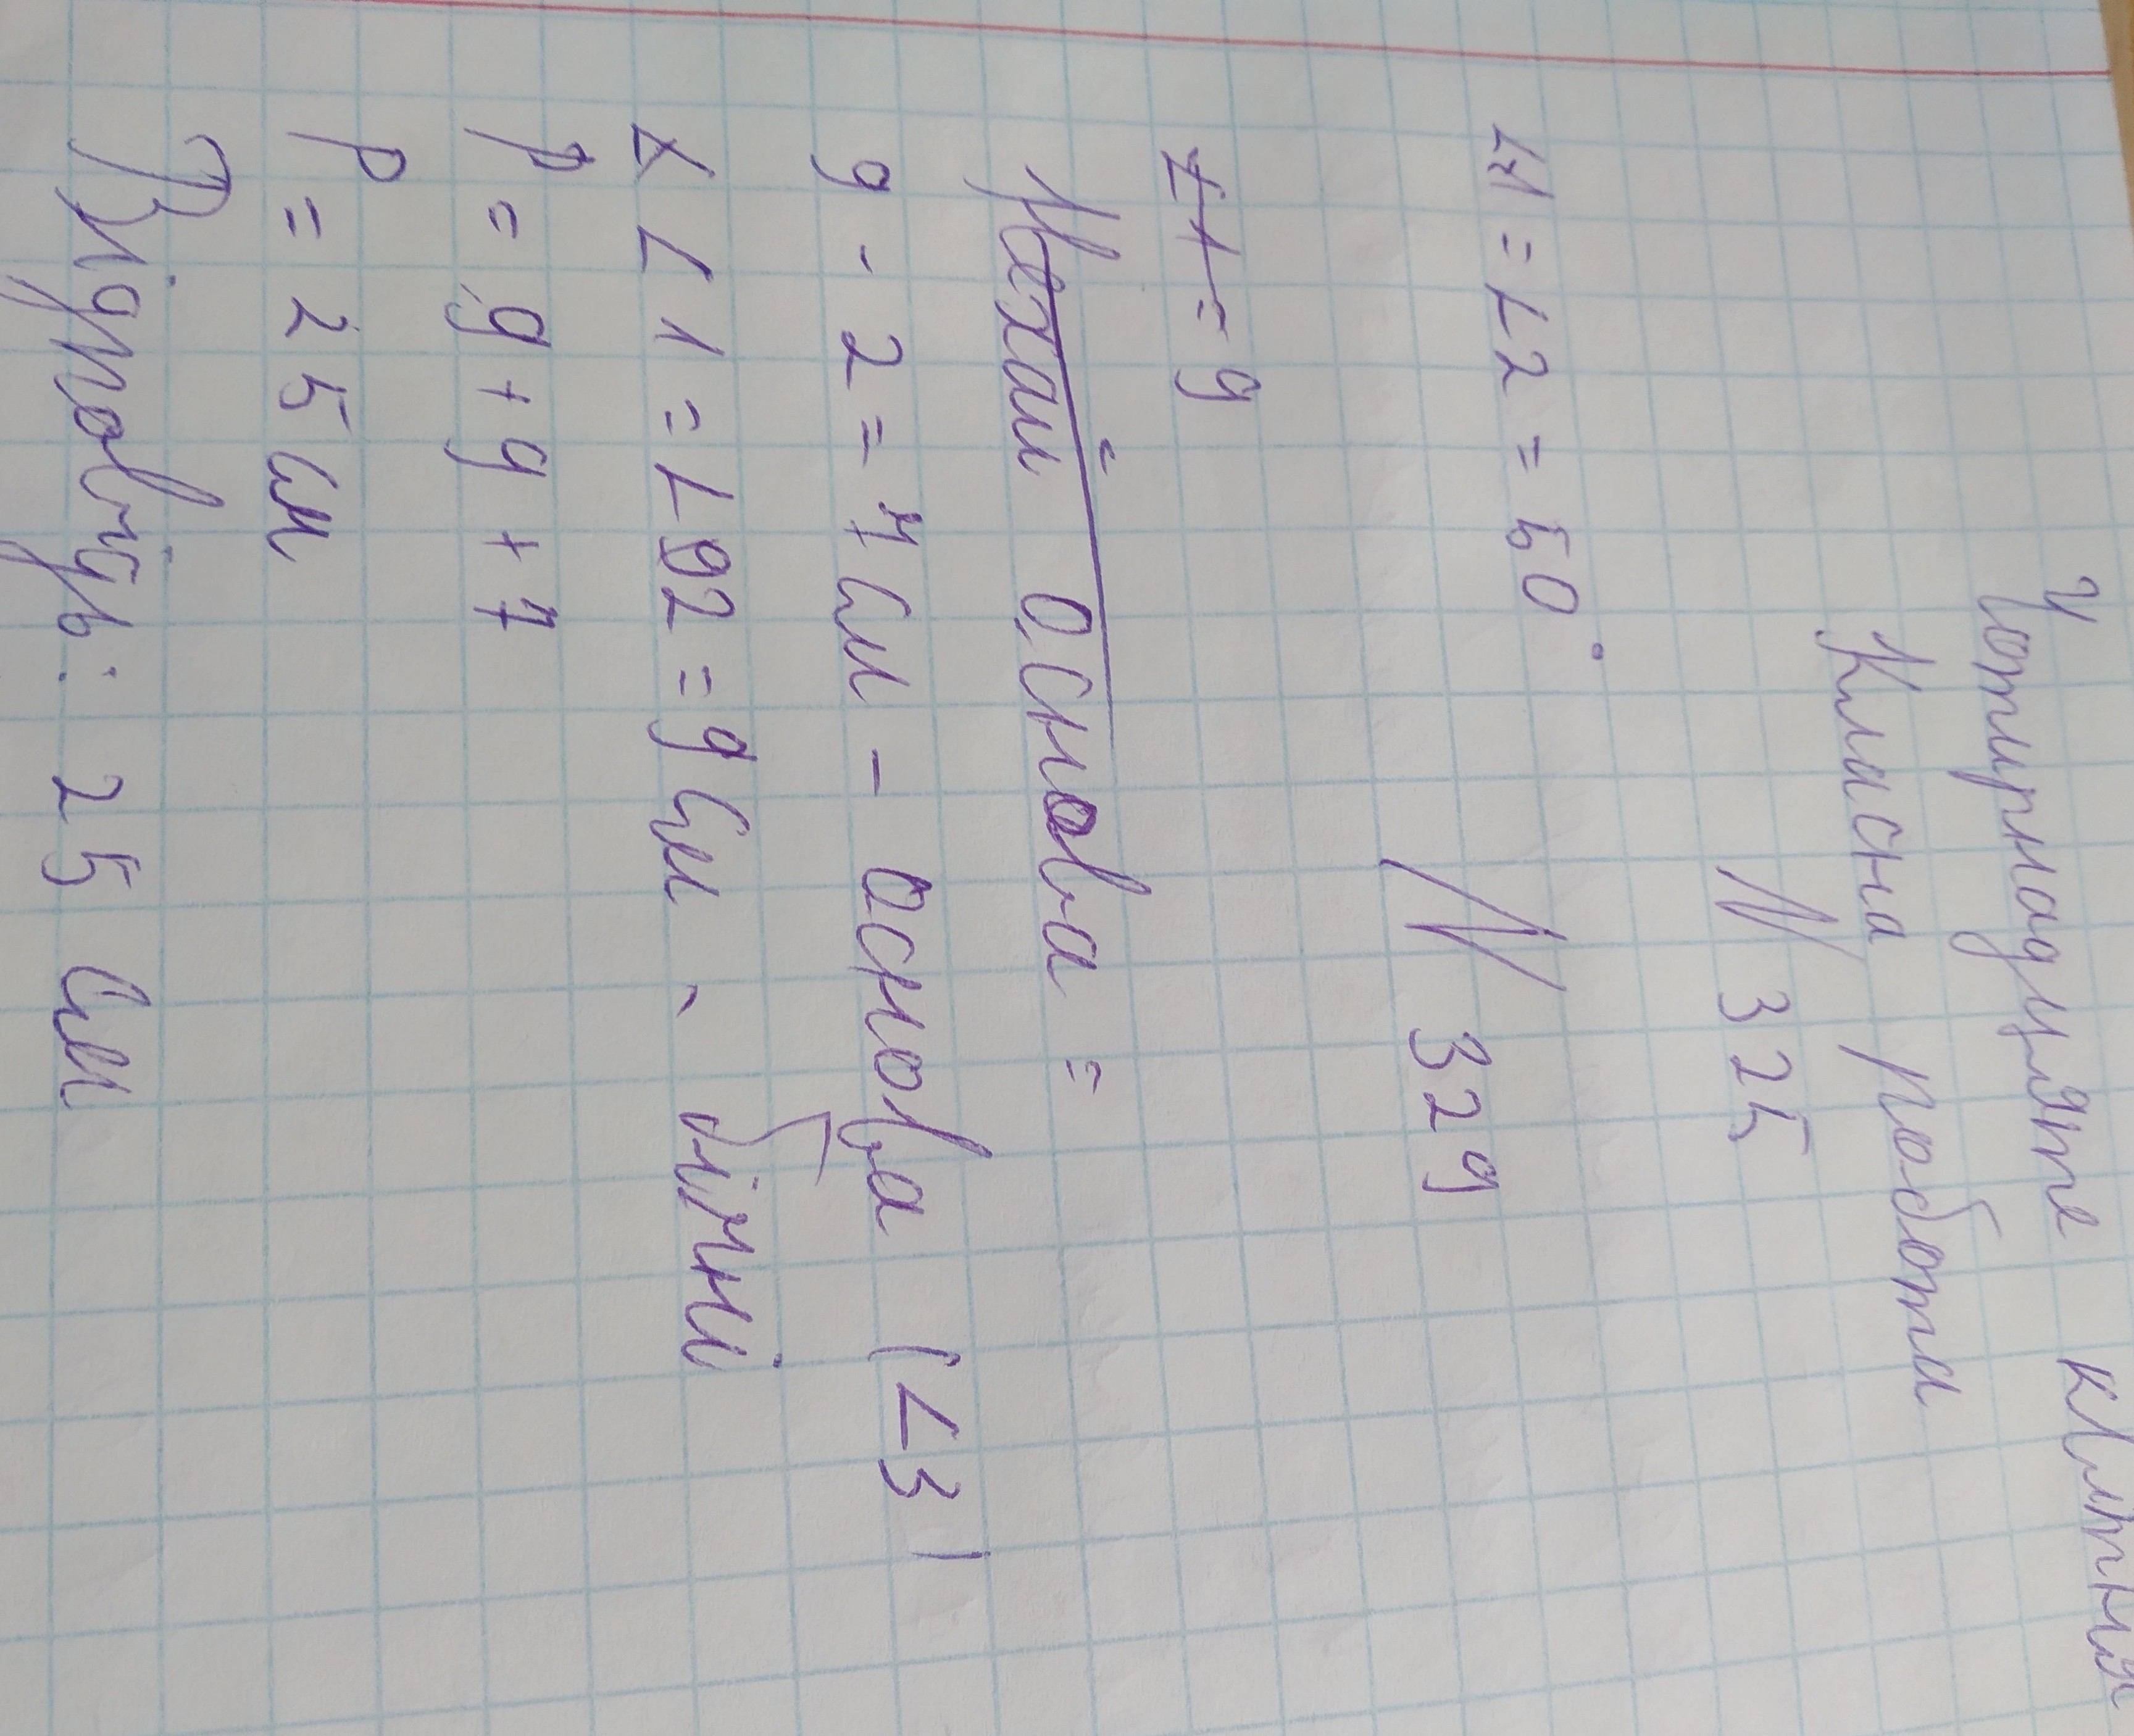 Чотирнадцяте квітня
Класна робота
N 325
∠1 = ∠2 = 60°
N 329
∠1 = 9
Нехай основа =
9 - 2 = 7 см - основа (∠3)
∠1 = ∠2 = 9 см - бічні
P = 9 + 9 + 7
P = 25 см
Відповідь: 25 см